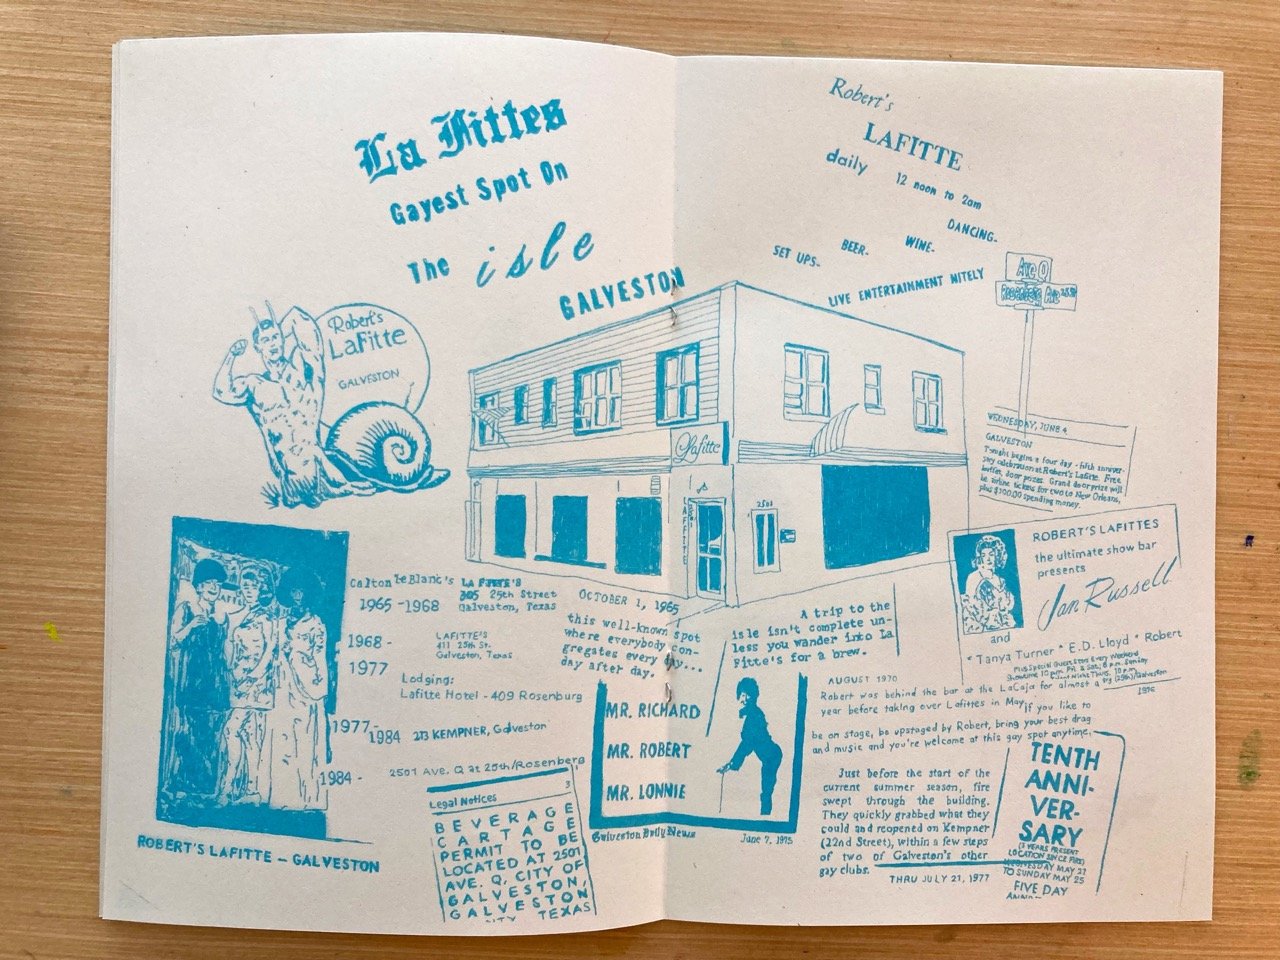 La Fittes
Gayest Spot On
The isle
GALVESTON
Robert's
LaFitte
GALVESTON
ROBERT'S LAFITTE – GALVESTON
Calton LeBlanc's LA FITTE'S
1965 -1968 305 25th Street
Galveston, Texas
1968 - LAFITTE'S
1977 411 25th St.
Galveston, Texas
Lodging:
Lafitte Hotel - 409 Rosenburg
1977-
1984 213 KEMPNER, Galveston
1984 - 2501 Ave. Q at 25th/Rosenberg
Legal Notices 3
BEVERAGE
CARTAGE
PERMIT TO BE
LOCATED AT 2501
AVE. Q, CITY OF
GALVESTON,
GALVESTON
TEXAS
OCTOBER 1, 1965
this well-known spot
where everybody con-
gregates every day...
day after day.
MR. RICHARD
MR. ROBERT
MR. LONNIE
Galveston Daily News June 7, 1975
Robert's
LAFITTE
daily 12 noon to 2am
SET UPS- BEER- WINE- DANCING-
LIVE ENTERTAINMENT NITELY
Lafitte
LAFITTE
2501
2501
Ave Q
Rosenberg Ave
WEDNESDAY, JUNE 4
GALVESTON
Tonight begins a four day - fifth anniver-
sary celebration at Robert's Lafitte. Free
buffet, door prizes. Grand door prize will
be airline tickets for two to New Orleans,
plus $100.00 spending money.
ROBERT'S LAFITTES
the ultimate show bar
presents
Jan Russell
and
* Tanya Turner * E.D. Lloyd * Robert
Plus Special Guest Stars Every Weekend
Showtime 10 p.m. Fri. & Sat., 8 p.m. Sunday
Talent Night Thurs. 10 p.m.
(25th)/Galveston
1976
A trip to the
isle isn't complete un-
less you wander into La
Fitte's for a brew.
AUGUST 1970
Robert was behind the bar at the LaCaja for almost a
year before taking over Lafittes in May. If you like to
be on stage, be upstaged by Robert, bring your best drag
and music and you're welcome at this gay spot anytime.
Just before the start of the
current summer season, fire
swept through the building.
They quickly grabbed what they
could and reopened on Kempner
(22nd Street), within a few steps
of two of Galveston's other
gay clubs.
THRU JULY 21, 1977
TENTH
ANNI-
VER-
SARY
(3 YEARS PRESENT
LOCATION SINCE FIRE)
WEDNESDAY MAY 21
TO SUNDAY MAY 25
FIVE DAY